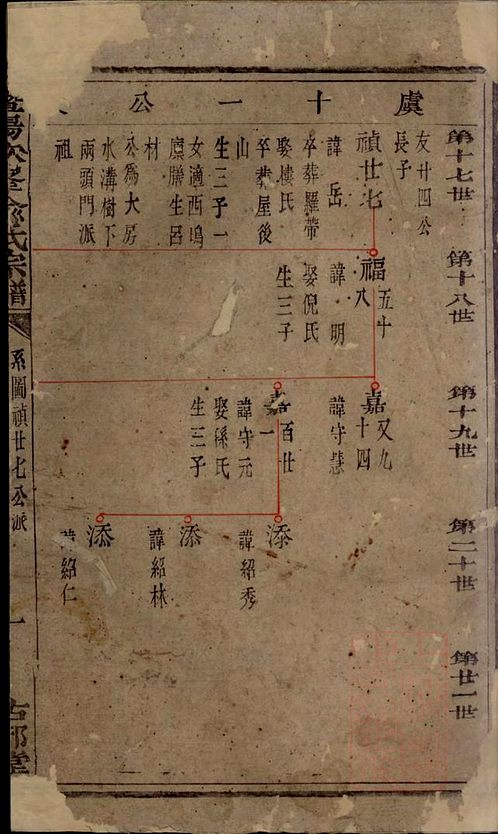 虞十一公
第十七世
第十八世
第十九世
第二十世
第廿一世
友廿四公
長子
禎廿七
諱岳
卒葬羅帶
娶樓氏
卒葬屋後
山
生三子一
女適西塢
虞勝生呂
材
公爲大房
水溝樹下
兩頭門派
祖
福八
五十
諱明
娶倪氏
生三子
嘉十四
又九
諱守慧
嘉一
百廿
諱守元
娶孫氏
生三子
添
諱紹秀
添
諱紹林
添
諱紹仁
氏宗譜
系圖禎廿七公派
一
堂